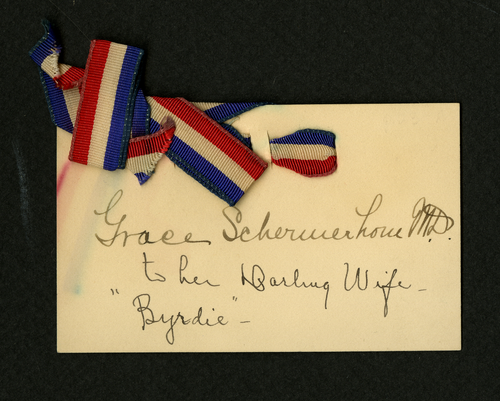 Grace Schermerhorn M.D.
to her Darling Wife -
"Byrdie" -